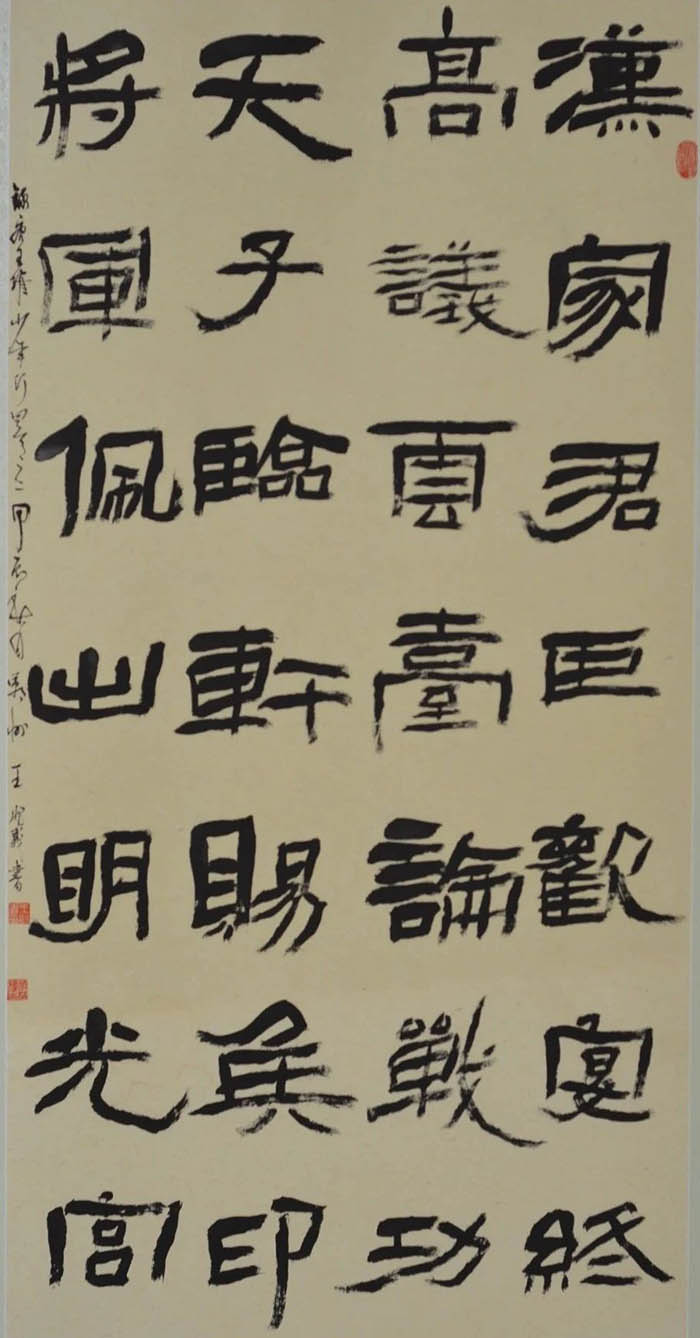 漢家君臣歡宴終
高議雲臺論戰功
天子臨軒賜侯印
將軍佩出明光宮
錄唐王維少年行四首之一 甲辰 月 王 書